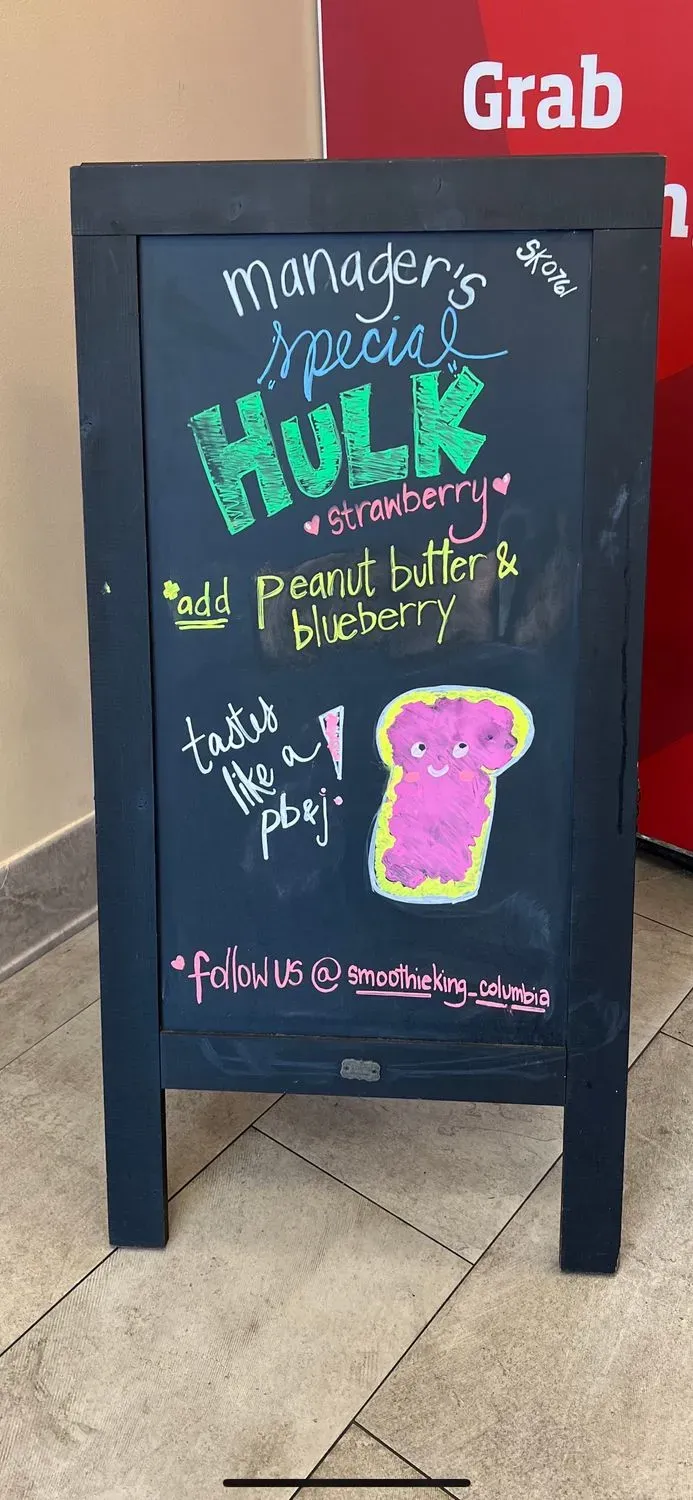 Grab
manager's
SK0761
special
"HULK"
strawberry
*add Peanut butter &
blueberry
tastes
like a
pb&j!
follow us @ smoothieking_columbia